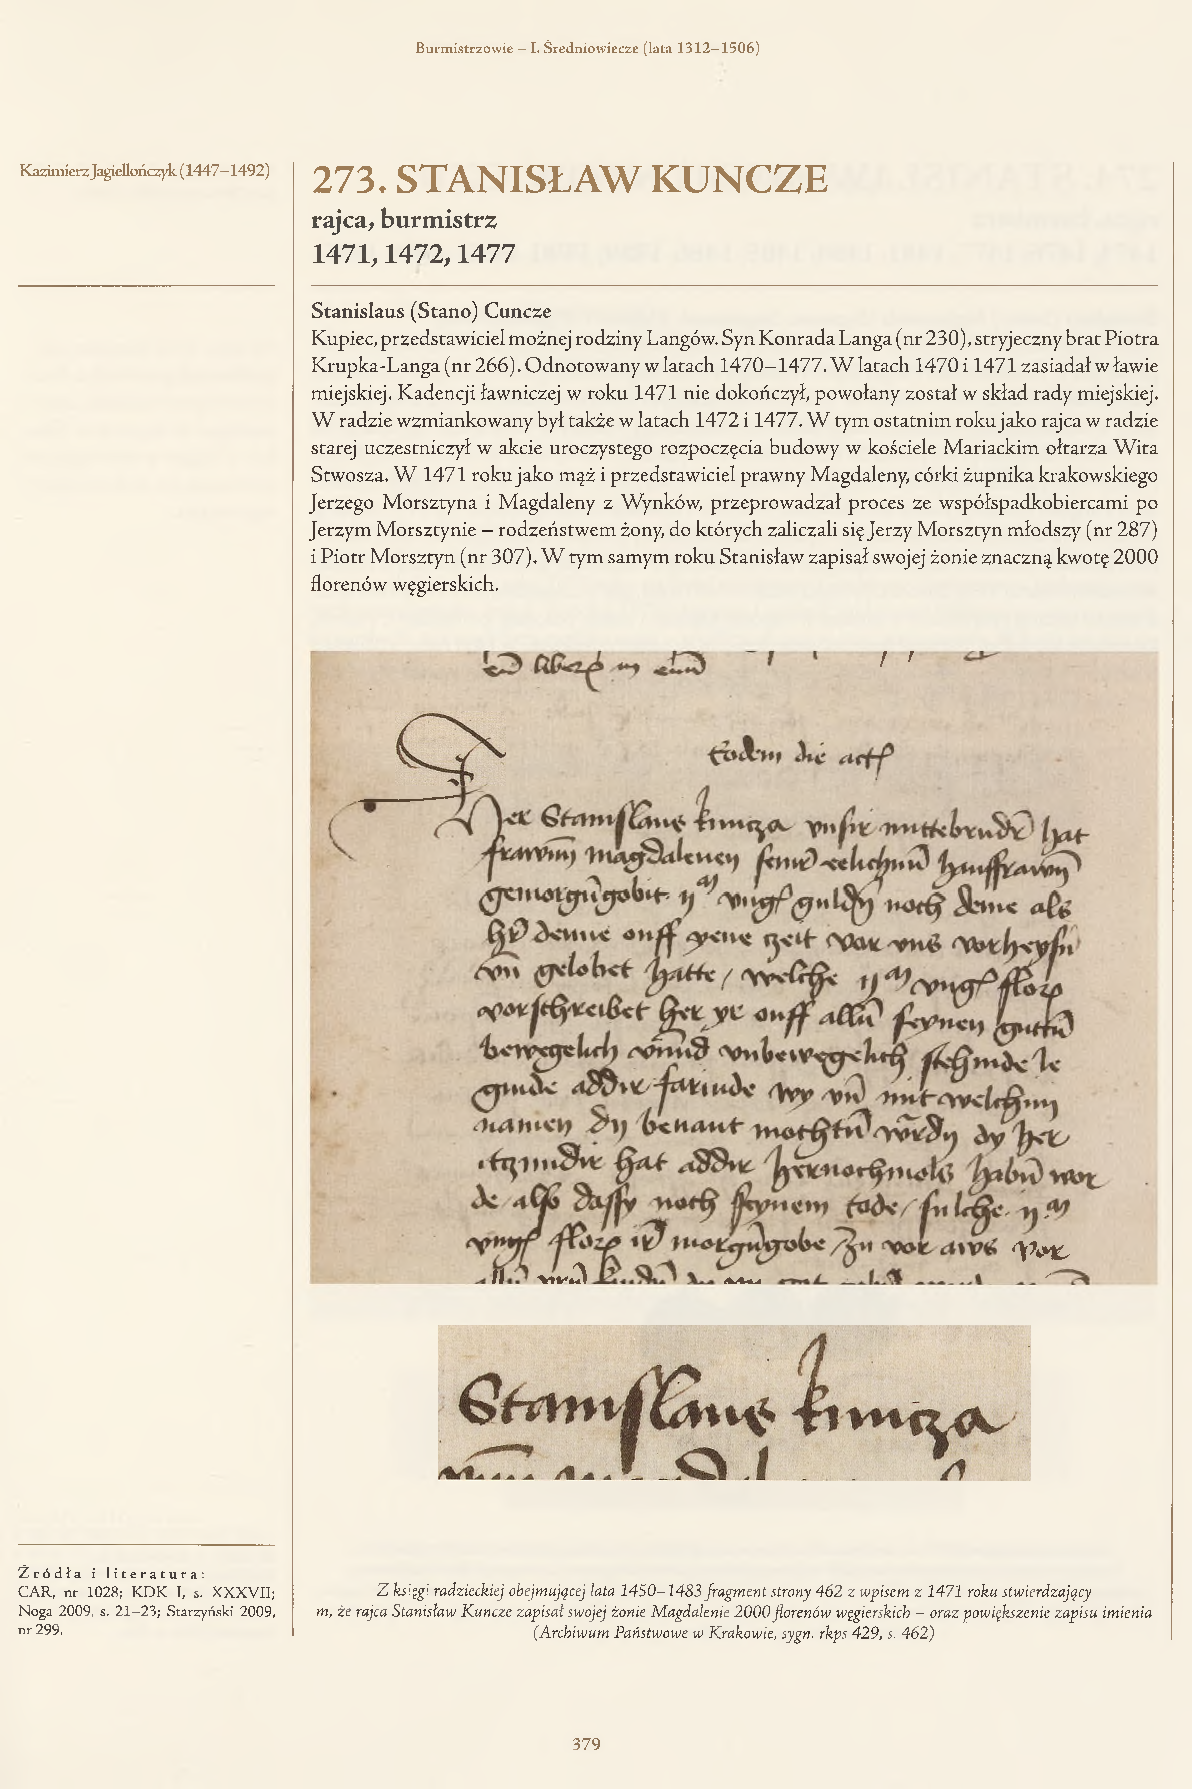 Burmistrzowie – I. Średniowiecze (lata 1312–1506)
Kazimierz Jagiellończyk (1447–1492)
273. STANISŁAW KUNCZE
rajca, burmistrz
1471, 1472, 1477
Stanislaus (Stano) Cuncze
Kupiec, przedstawiciel możnej rodziny Langów. Syn Konrada Langa (nr 230), stryjeczny brat Piotra
Krupka-Langa (nr 266). Odnotowany w latach 1470–1477. W latach 1470 i 1471 zasiadał w ławie
miejskiej. Kadencji ławniczej w roku 1471 nie dokończył, powołany został w skład rady miejskiej.
W radzie wzmiankowany był także w latach 1472 i 1477. W tym ostatnim roku jako rajca w radzie
starej uczestniczył w akcie uroczystego rozpoczęcia budowy w kościele Mariackim ołtarza Wita
Stwosza. W 1471 roku jako mąż i przedstawiciel prawny Magdaleny, córki żupnika krakowskiego
Jerzego Morsztyna i Magdaleny z Wynków, przeprowadzał proces ze współspadkobiercami po
Jerzym Morsztynie – rodzeństwem żony, do których zaliczali się Jerzy Morsztyn młodszy (nr 287)
i Piotr Morsztyn (nr 307). W tym samym roku Stanisław zapisał swojej żonie znaczną kwotę 2000
florenów węgierskich.
Eodem die
her Stanislaus kuncza vnsir mittebrudr hat
magdalenen hausfrawn
noch deme als
denne onff yene czeit vor vns vorheysn
vn gelobet hatte / welche
vorschreibet her yr onff alln seynen guttn
bewegelich vnnd vnbewegelich stehinde le
ginde addir farinde wy vn mit welchin
namen dy benant mochtn wrdn dy her
itzundir hat addir hernochmols habn wor
de also dassy noch seynem tode / sulche
morgngobe zu vor aws vor
Stanislaus kuncza
Źródła i literatura:
CAR, nr 1028; KDK I, s. XXXVII;
Noga 2009, s. 21–23; Starzyński 2009,
nr 299.
Z księgi radzieckiej obejmującej lata 1450–1483 fragment strony 462 z wpisem z 1471 roku stwierdzający
m, że rajca Stanisław Kuncze zapisał swojej żonie Magdalenie 2000 florenów węgierskich – oraz powiększenie zapisu imienia
(Archiwum Państwowe w Krakowie, sygn. rkps 429, s. 462)
379